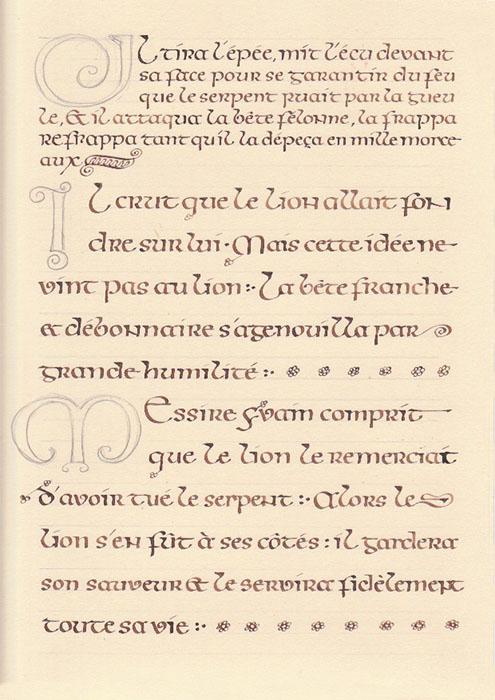 Il tira l'épée, mit l'écu devant
sa face pour se garantir du feu
que le serpent ruait par la gueu
le, & il attaqua la bête félonne, la frappa
refrappa tant qu'il la dépeça en mille morce-
aux
Il crut que le lion allait fon
dre sur lui. Mais cette idée ne-
vint pas au lion : La bête franche-
et débonnaire s'agenouilla par
grande humilité :
Messire Yvain comprit
que le lion le remerciait
d'avoir tué le serpent : Alors le
lion s'en fût à ses côtés : il gardera
son sauveur & le servira fidèlement
toute sa vie :